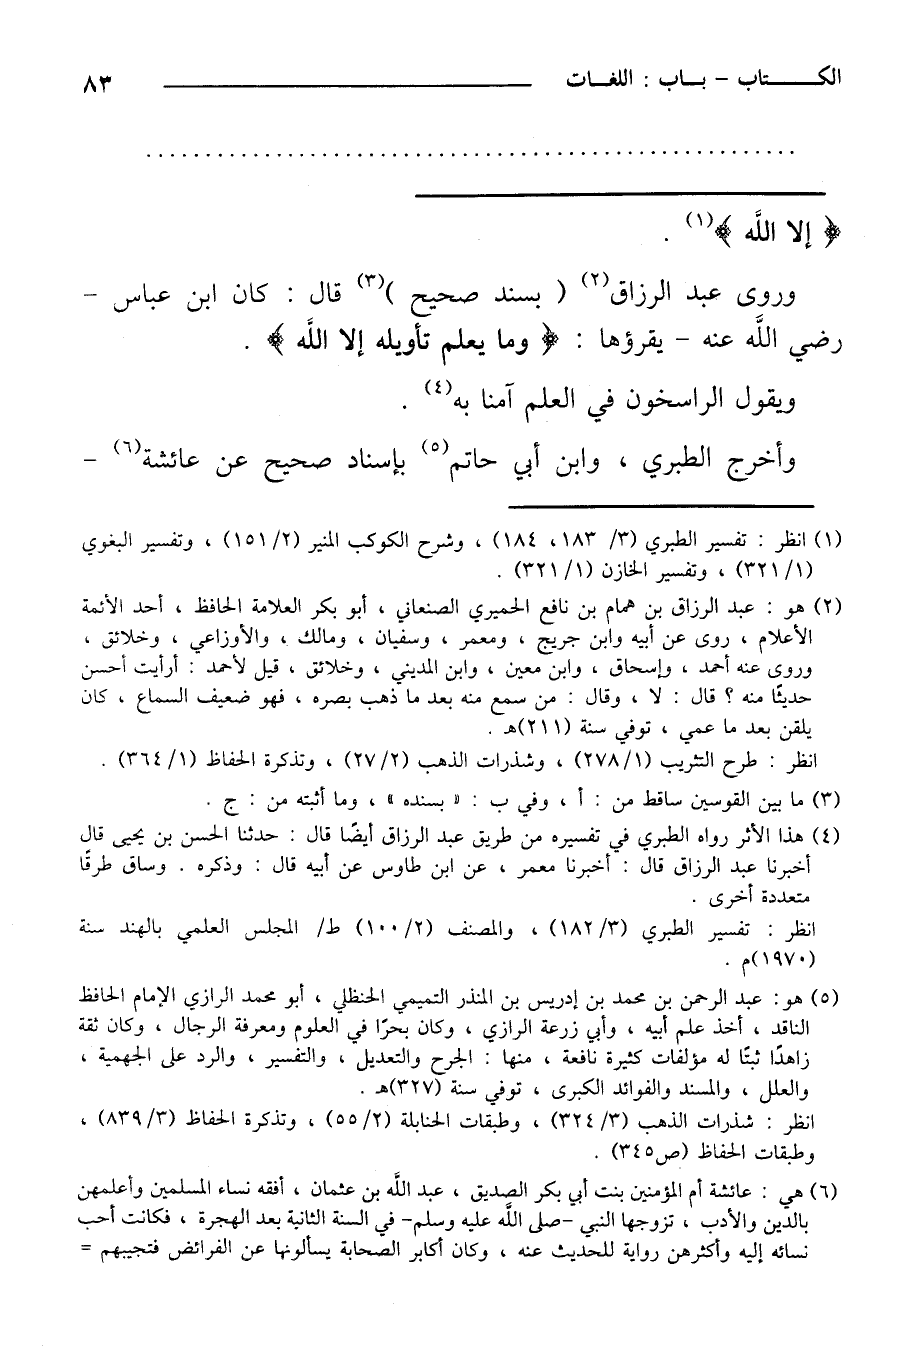 الكـــــتاب – بـاب : اللغـات ٨٣
﴿ إلا اللَّه ﴾(١) .
وروى عبد الرزاق(٢) ( بسند صحيح )(٣) قال : كان ابن عباس –
رضي اللَّه عنه – يقرؤها : ﴿ وما يعلم تأويله إلا اللَّه ﴾ .
ويقول الراسخون في العلم آمنا به(٤) .
وأخرج الطبري ، وابن أبي حاتم(٥) بإسناد صحيح عن عائشة(٦) –
(١) انظر : تفسير الطبري (٣/ ١٨٣، ١٨٤) ، وشرح الكوكب المنير (٢/ ١٥١) ، وتفسير البغوي
(١/ ٣٢١) ، وتفسير الخازن (١/ ٣٢١) .
(٢) هو : عبد الرزاق بن همام بن نافع الحميري الصنعاني ، أبو بكر العلامة الحافظ ، أحد الأئمة
الأعلام ، روى عن أبيه وابن جريج ، ومعمر ، وسفيان ، ومالك ، والأوزاعي ، وخلائق ،
وروى عنه أحمد ، وإسحاق ، وابن معين ، وابن المديني ، وخلائق ، قيل لأحمد : أرأيت أحسن
حديثًا منه ؟ قال : لا ، وقال : من سمع منه بعد ما ذهب بصره ، فهو ضعيف السماع ، كان
يلقن بعد ما عمي ، توفي سنة (٢١١)هـ .
انظر : طرح التثريب (١/ ٢٧٨) ، وشذرات الذهب (٢/ ٢٧) ، وتذكرة الحفاظ (١/ ٣٦٤) .
(٣) ما بين القوسين ساقط من : أ ، وفي ب : « بسنده » ، وما أثبته من : ج .
(٤) هذا الأثر رواه الطبري في تفسيره من طريق عبد الرزاق أيضًا قال : حدثنا الحسن بن يحيى قال
أخبرنا عبد الرزاق قال : أخبرنا معمر ، عن ابن طاوس عن أبيه قال : وذكره . وساق طرقًا
متعددة أخرى .
انظر : تفسير الطبري (٣/ ١٨٢) ، والمصنف (٢/ ١٠٠) ط/ المجلس العلمي بالهند سنة
(١٩٧٠)م .
(٥) هو: عبد الرحمن بن محمد بن إدريس بن المنذر التميمي الحنظلي ، أبو محمد الرازي الإمام الحافظ
الناقد ، أخذ علم أبيه ، وأبي زرعة الرازي ، وكان بحرًا في العلوم ومعرفة الرجال ، وكان ثقة
زاهدًا ثبتًا له مؤلفات كثيرة نافعة ، منها : الجرح والتعديل ، والتفسير ، والرد على الجهمية ،
والعلل ، والمسند والفوائد الكبرى ، توفي سنة (٣٢٧)هـ .
انظر : شذرات الذهب (٣/ ٣٢٤) ، وطبقات الحنابلة (٢/ ٥٥) ، وتذكرة الحفاظ (٣/ ٨٣٩) ،
وطبقات الحفاظ (ص٣٤٥) .
(٦) هي : عائشة أم المؤمنين بنت أبي بكر الصديق ، عبد اللَّه بن عثمان ، أفقه نساء المسلمين وأعلمهن
بالدين والأدب ، تزوجها النبي –صلى اللَّه عليه وسلم– في السنة الثانية بعد الهجرة ، فكانت أحب
نسائه إليه وأكثرهن رواية للحديث عنه ، وكان أكابر الصحابة يسألونها عن الفرائض فتجيبهم =